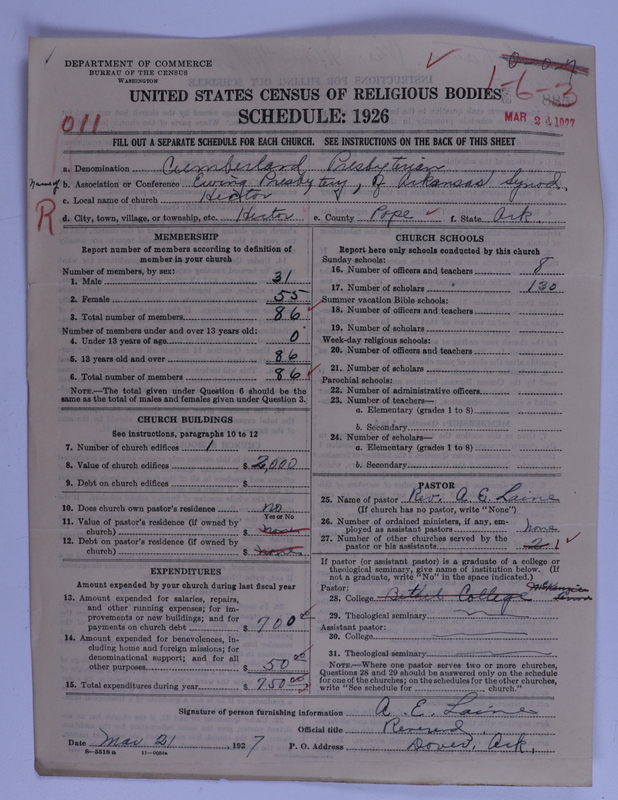 DEPARTMENT OF COMMERCE
BUREAU OF THE CENSUS
WASHINGTON
1-6-3
UNITED STATES CENSUS OF RELIGIOUS BODIES
SCHEDULE: 1926
MAR 24 1927
011
FILL OUT A SEPARATE SCHEDULE FOR EACH CHURCH. SEE INSTRUCTIONS ON THE BACK OF THIS SHEET
a. Denomination Cumberland Presbyterian
Name of b. Association or Conference Ewing Presbytery, of Arkansas Synod.
c. Local name of church Hector
R
d. City, town, village, or township, etc. Hector e. County Pope f. State Ark.
MEMBERSHIP
Report number of members according to definition of member in your church
Number of members, by sex:
1. Male 31
2. Female 55
3. Total number of members 86
Number of members under and over 13 years old:
4. Under 13 years of age 0
5. 13 years old and over 86
6. Total number of members 86
NOTE.—The total given under Question 6 should be the same as the total of males and females given under Question 3.
CHURCH BUILDINGS
See instructions, paragraphs 10 to 12
7. Number of church edifices 1
8. Value of church edifices $ 2,000
9. Debt on church edifices $
10. Does church own pastor's residence no
Yes or No
11. Value of pastor's residence (if owned by church) $ none
12. Debt on pastor's residence (if owned by church) $ none
EXPENDITURES
Amount expended by your church during last fiscal year
13. Amount expended for salaries, repairs, and other running expenses; for improvements or new buildings; and for payments on church debt $ 700 00
14. Amount expended for benevolences, including home and foreign missions; for denominational support; and for all other purposes $ 50 00
15. Total expenditures during year $ 750 00
CHURCH SCHOOLS
Report here only schools conducted by this church
Sunday schools:
16. Number of officers and teachers 8
17. Number of scholars 130
Summer vacation Bible schools:
18. Number of officers and teachers
19. Number of scholars
Week-day religious schools:
20. Number of officers and teachers
21. Number of scholars
Parochial schools:
22. Number of administrative officers
23. Number of teachers—
a. Elementary (grades 1 to 8)
b. Secondary
24. Number of scholars—
a. Elementary (grades 1 to 8)
b. Secondary
PASTOR
25. Name of pastor Rev. A. E. Laine
(If church has no pastor, write "None")
26. Number of ordained ministers, if any, employed as assistant pastors none
27. Number of other churches served by the pastor or his assistants 2 1
If pastor (or assistant pastor) is a graduate of a college or theological seminary, give name of institution below. (If not a graduate, write "No" in the space indicated.)
Pastor:
28. College Bethel College McKenzie
29. Theological seminary
Assistant pastor:
30. College
31. Theological seminary
NOTE.—Where one pastor serves two or more churches, Questions 28 and 29 should be answered only on the schedule for one of the churches; on the schedules for the other churches, write "See schedule for church."
Signature of person furnishing information A. E. Laine
Official title Reverend
Date Mar 21, 1927 P. O. Address Dover, Ark.
8—5518a 11—9034a